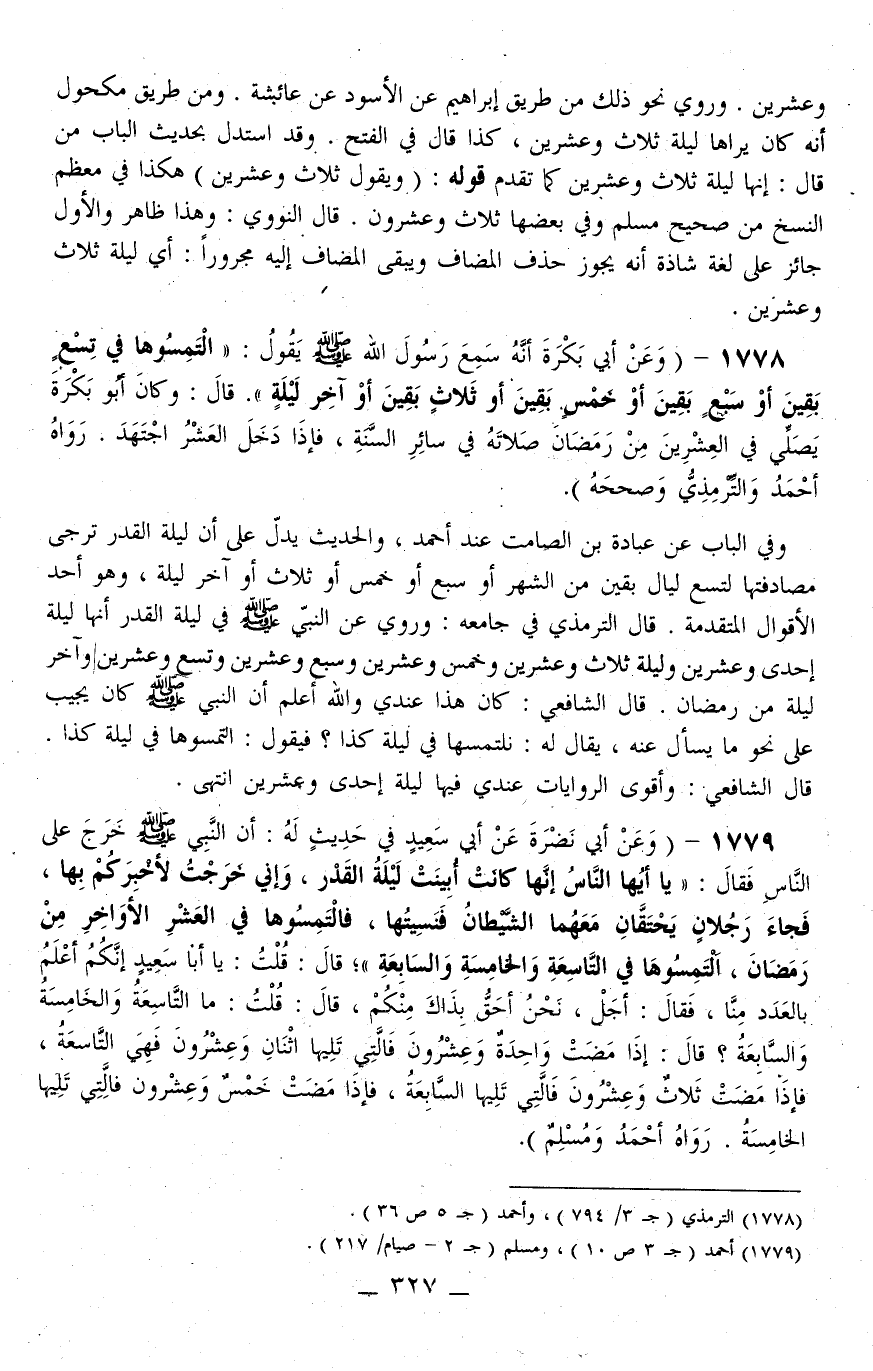 وعشرين . وروي نحو ذلك من طريق إبراهيم عن الأسود عن عائشة . ومن طريق مكحول
أنه كان يراها ليلة ثلاث وعشرين ، كذا قال في الفتح . وقد استدل بحديث الباب من
قال : إنها ليلة ثلاث وعشرين كما تقدم قوله : ( ويقول ثلاث وعشرين ) هكذا في معظم
النسخ من صحيح مسلم وفي بعضها ثلاث وعشرون . قال النووي : وهذا ظاهر والأول
جائز على لغة شاذة أنه يجوز حذف المضاف ويبقى المضاف إليه مجروراً : أي ليلة ثلاث
وعشرين .
١٧٧٨ - ( وَعَنْ أبي بَكْرَةَ أنَّهُ سَمِعَ رَسُولَ الله ﷺ يَقُولُ : « الْتَمِسُوها في تِسْعٍ
بَقِينَ أوْ سَبْعٍ بَقِينَ أوْ خَمْسٍ بَقِينَ أو ثَلاثٍ بَقِينَ أوْ آخِر لَيْلَةٍ ». قالَ : وكانَ أبُو بَكْرَةَ
يَصَلِّي في العِشْرِينَ مِنْ رَمَضَانَ صَلاتَهُ في سائِرِ السَّنَةِ ، فإذَا دَخَلَ العَشْرُ اجْتَهَدَ . رَوَاهُ
أحْمَدُ وَالتِّرْمِذِيُّ وَصححَهُ ).
وفي الباب عن عبادة بن الصامت عند أحمد ، والحديث يدلّ على أن ليلة القدر ترجى
مصادفتها لتسع ليال بقين من الشهر أو سبع أو خمس أو ثلاث أو آخر ليلة ، وهو أحد
الأقوال المتقدمة . قال الترمذي في جامعه : وروي عن النبيّ ﷺ في ليلة القدر أنها ليلة
إحدى وعشرين وليلة ثلاث وعشرين وخمس وعشرين وسبع وعشرين وتسع وعشرين وآخر
ليلة من رمضان . قال الشافعي : كان هذا عندي والله أعلم أن النبي ﷺ كان يجيب
على نحو ما يسأل عنه ، يقال له : نلتمسها في ليلة كذا ؟ فيقول : التمسوها في ليلة كذا .
قال الشافعي : وأقوى الروايات عندي فيها ليلة إحدى وعشرين انتهى .
١٧٧٩ - ( وَعَنْ أبي نَضْرَةَ عَنْ أبي سَعِيدٍ في حَدِيثٍ لَهُ : أن النَّبِي ﷺ خَرَجَ على
النَّاسِ فَقالَ : « يا أيُها النَّاسُ إنَّها كانَتْ أُبِينَتْ لَيْلَةُ القَدْر ، وَإني خَرَجْتُ لأخْبِرَكُمْ بِها ،
فَجاءَ رَجُلانٍ يَحْتَقَّانِ مَعَهُما الشَّيْطانُ فَنَسِيتُها ، فالْتَمِسُوها في العَشْرِ الأوَاخِرِ مِنْ
رَمَضَانَ ، اَلْتَمِسُوهَا في التَّاسعَةِ وَالخامسَةِ وَالسابِعَةِ »؛ قالَ : قُلْتُ : يا أبا سَعِيدٍ إنَّكُمُ أعْلَمُ
بالعَدَد مِنَّا ، فَقالَ : أجَلْ ، نَحْنُ أحَقُّ بِذَاكَ مِنْكُمْ ، قالَ : قُلْتُ : ما التَّاسِعَةُ وَالخَامِسَةُ
وَالسَّابعَةُ ؟ قالَ : إذَا مَضَتْ وَاحِدَةٌ وَعِشْرُونَ فَالَّتِي تَلِيها اثْنَانِ وَعِشْرُونَ فَهِيَ التَّاسعَةُ ،
فإذَا مَضَتْ ثَلاثٌ وَعِشْرُونَ فَالَّتِي تَلِيها السَّابِعَةُ ، فإذَا مَضَتْ خَمْسٌ وَعِشْرون فالَّتِي تَلِيها
الخامِسَةُ . رَوَاهُ أحْمَدُ وَمُسْلِمٌ ).
(١٧٧٨) الترمذي ( جـ ٣/ ٧٩٤ ) ، وأحمد ( جـ ٥ ص ٣٦ ) .
(١٧٧٩) أحمد ( جـ ٣ ص ١٠ ) ، ومسلم ( جـ ٢ - صيام/ ٢١٧ ) .
_ ٣٢٧ _